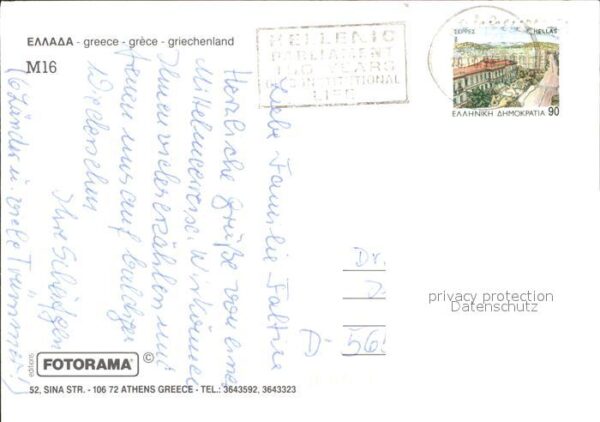 ΕΛΛΑΔΑ - greece - grèce - griechenland
M16
HELLENIC
PARLIAMENT
150 YEARS
CONSTITUTIONAL
LIFE
ΣΕΡΡΕΣ HELLAS
ΕΛΛΗΝΙΚΗ ΔΗΜΟΚΡΑΤΙΑ 90
Liebe Familie
Herzliche Grüße von einer
Mittelmeerreise. Wir können
Ihnen vieles erzählen und
freuen uns auf baldiges
Wiedersehen
Ihre
(6 Länder u. viele Trümmer!)
Dr.
D 56
privacy protection
Datenschutz
editions FOTORAMA ©
52, SINA STR. - 106 72 ATHENS GREECE - TEL.: 3643592, 3643323